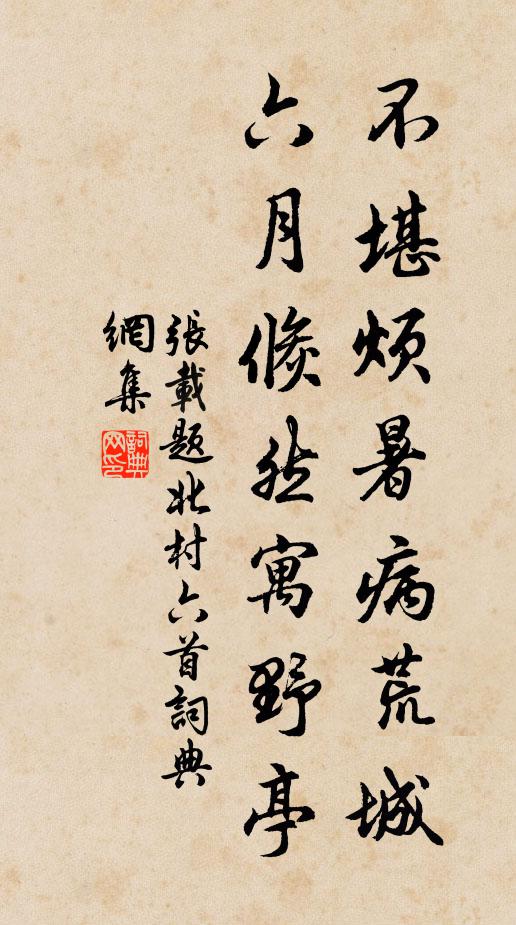 不堪煩暑病荒城
六月翛然寓野亭
張載題北村六首詞典
網集
詞典网印